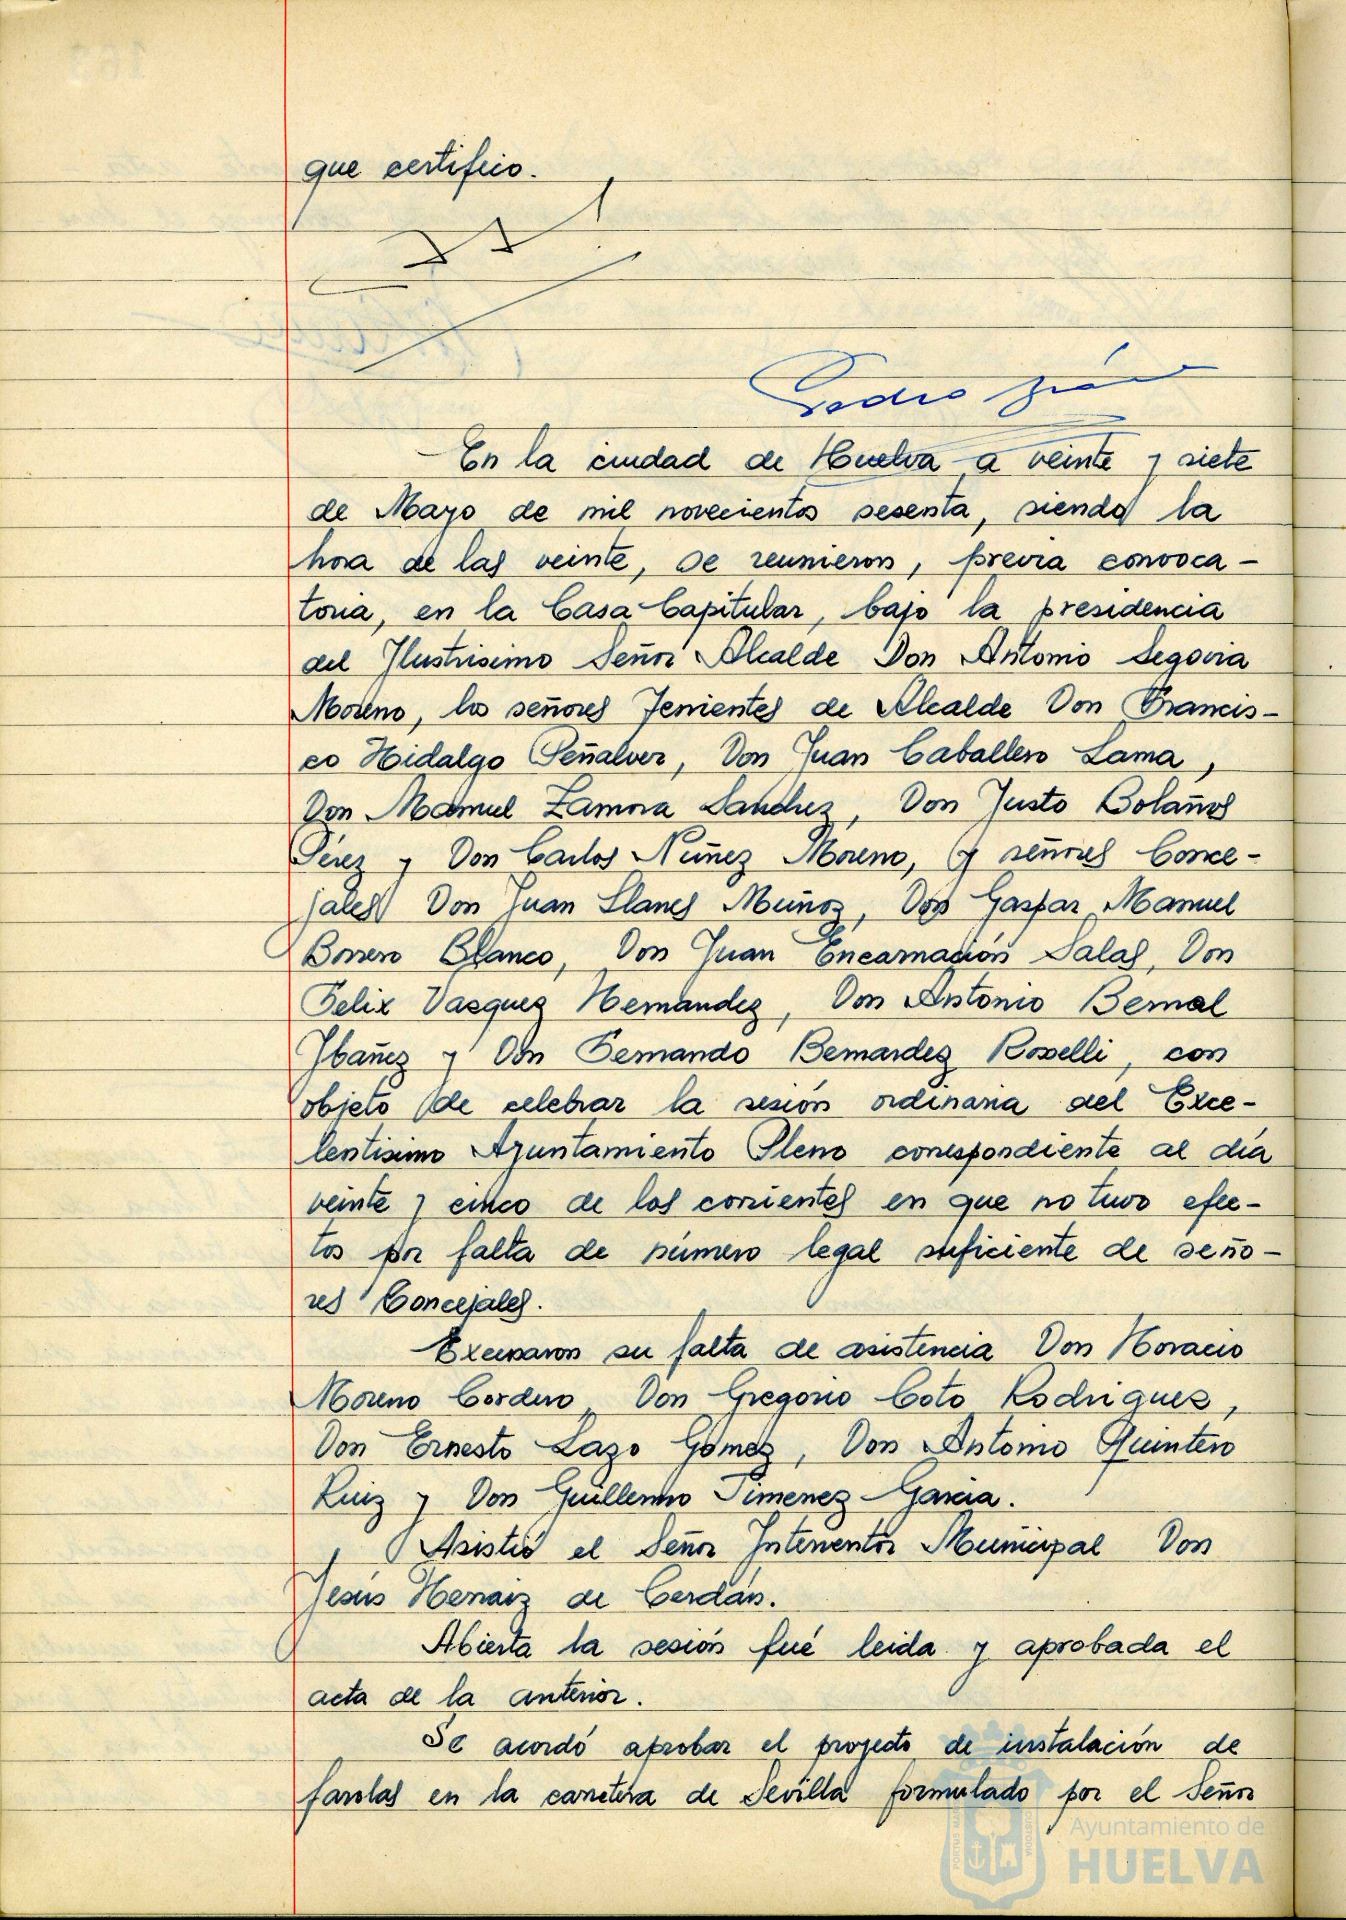 que certifico.
Pedro
En la ciudad de Huelva a veinte y siete
de Mayo de mil novecientos sesenta, siendo la
hora de las veinte, se reunieron, previa convoca-
toria, en la Casa Capitular, bajo la presidencia
del Ilustrisimo Señor Alcalde Don Antonio Segovia
Moreno, los señores Tenientes de Alcalde Don Francis-
co Hidalgo Peñalver, Don Juan Caballero Lama,
Don Manuel Zamora Sanchez, Don Justo Bolaños
Pérez y Don Carlos Núñez Moreno, y señores Conce-
jales Don Juan Llanes Muñoz, Don Gaspar Manuel
Borrero Blanco, Don Juan Encarnación Salas, Don
Felix Vazquez Hernandez, Don Antonio Bernal
Ybañez y Don Fernando Bernardez Roselli, con
objeto de celebrar la sesión ordinaria del Exce-
lentisimo Ayuntamiento Pleno correspondiente al día
veinte y cinco de los corrientes en que no tuvo efec-
tos por falta de número legal suficiente de seño-
res Concejales.
Excusaron su falta de asistencia Don Horacio
Moreno Cordero, Don Gregorio Coto Rodriguez,
Don Ernesto Lazo Gomez, Don Antonio Quintero
Ruiz y Don Guillermo Jimenez Garcia.
Asistió el Señor Interventor Municipal Don
Jesús Hernaiz de Cerdán.
Abierta la sesión fué leida y aprobada el
acta de la anterior.
Se acordó aprobar el proyecto de instalación de
farolas en la carretera de Sevilla formulado por el Señor
Ayuntamiento de
HUELVA